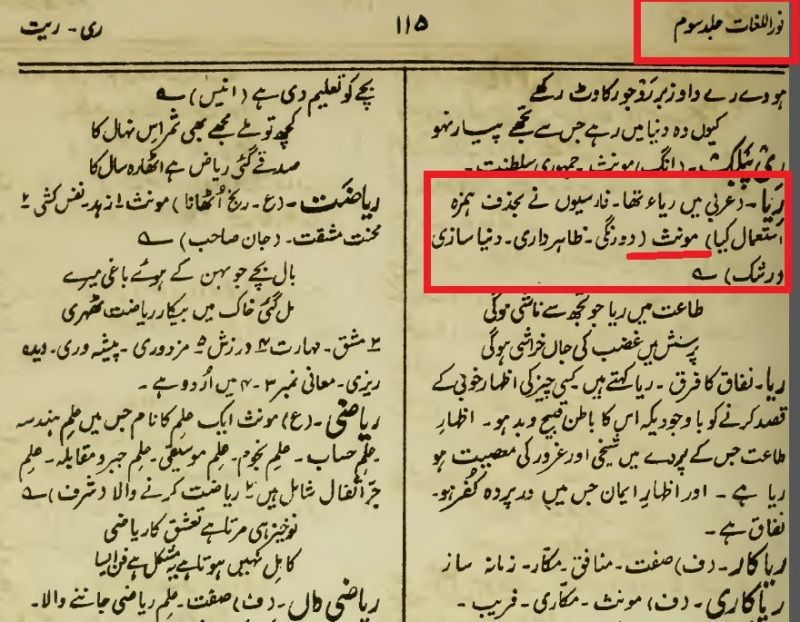 نوراللغات جلد سوم
۱۱۵
ری - ریت
ہووے رے داوز بر زد جور کاوٹ رکھے
کیوں وہ دنیا میں رہے جس سے تجھے پیار نہو
ری پبلک - (انگ) مونث - جمہوری سلطنت -
ریا - (عربی میں ریاء تھا - فارسیوں نے بحذف ہمزہ
استعمال کیا) مونث (دورنگی - ظاہرداری - دنیا سازی
(رشک) ؎
طاعت میں ریا جو تجھ سے ناشی ہوگی
پرسش میں غضب کی جاں خراشی ہوگی
ریا - نفاق کا فرق - ریا کہتے ہیں کسی چیز کی اظہار خوبی کے
قصد کرنے کو باوجودیکہ اس کا باطن قبیح و بد ہو - اظہار
طاعت جس کے پردے میں شیخی اور غرور کی معصیت ہو
ریا ہے - اور اظہار ایمان جس میں در پردہ کفر ہو -
نفاق ہے -
ریاکار - (ف) صفت - منافق - مکّار - زمانہ ساز
ریاکاری - (ف) مونث - مکّاری - فریب -
بچے کو تعلیم دی ہے (انیس) ؎
کچھ تو ملے مجھے بھی ثمر اس نہال کا
صدقے گئی ریاض ہے اٹھارہ سال کا
ریاضت - (ع - رنج اُٹھانا) مونث ۱ زہد نفس کشی ۲
محنت مشقت - (جان صاحب) ؎
بال بچے جو بہن کے ہوئے باغی میرے
مل گئی خاک میں بیکار ریاضت ٹھہری
۳ مشق - مہارت ۴ ورزش ۵ مزدوری - پیشہ وری - دیدہ
ریزی - معانی نمبر ۳ - ۴ میں اُردو ہے -
ریاضی - (ع) مونث ایک علم کا نام جس میں علم ہندسہ
علم حساب - علم نجوم - علم موسیقی - علم جبر و مقابلہ - علم
جرّ اثقال شامل ہیں ۲ ریاضت کرنے والا (شرف) ؎
نوخیز ہی مرتا ہے تعشق کا ریاضی
کامل نہیں ہوتا ہے یہ مشکل ہے فن ایسا
ریاضی داں - (ف) صفت - علم ریاضی جاننے والا -